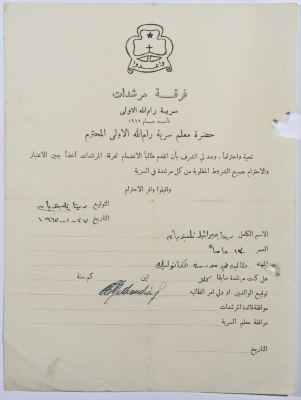 واعدوا
فرقة مرشدات
سرية رام الله الاولى
تأسست عام ١٩٦٢
حضرة معلم سرية رام الله الاولى المحترم
تحية واحتراماً ، وبعد لي الشرف بأن اتقدم طالباً الانضمام لفرقة المرشدات آخذاً بعين الاعتبار
والاحترام جميع الشروط المطلوبة من كل مرشدة في السرية
واقبلوا وافر الاحترام
التوقيع ريتا
التاريخ ٢٧-١-١٩٦٧
الاسم الكامل ريتا جبرائيل
العمر ١٣ عاماً
المهنه طالبه في مدرسة الكاثوليك
هل كنت مرشدة سابقاً كلا اين كم سنة
توقيع الوالدين او ولي امر الطالبه
موافقة قائدة المرشدات
موافقة معلم السرية
التاريخ